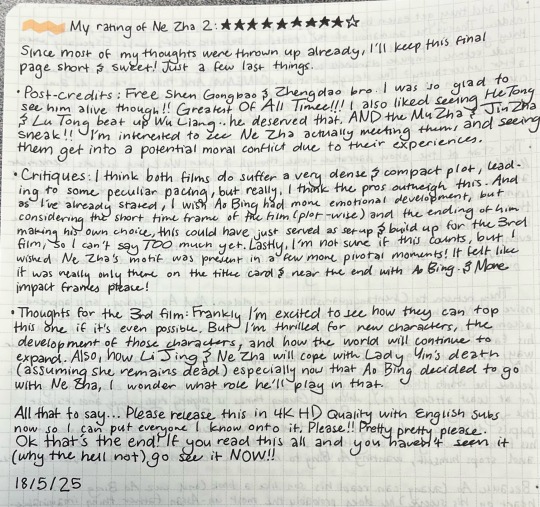 My rating of Ne Zha 2: ★★★★★★★★★☆
Since most of my thoughts were thrown up already, I'll keep this final
page short & sweet! Just a few last things.
• Post-credits: Free Shen Gongbao & Zhengdao bro. I was so glad to
see him alive though!! Greatest Of All Time!!! I also liked seeing HeTong
& Lu Tong beat up Wu Liang.. he deserved that. AND the Mu Zha & JinZha
sneak!! I'm interested to see Ne Zha actually meeting them, and seeing
them get into a potential moral conflict due to their experiences.
• Critiques: I think both films do suffer a very dense & compact plot, lead-
ing to some peculiar pacing, but really, I think the pros outweigh this. And
as I've already stated, I wish Ao Bing had more emotional development, but
considering the short time frame of the film (plot-wise) and the ending of him
making his own choice, this could have just served as setup & build up for the 3rd
film, so I can't say TOO much yet. Lastly, I'm not sure if this counts, but I
wished Ne Zha's motif was present in a few more pivotal moments! It felt like
it was really only there on the title card & near the end with Ao Bing. & More
impact frames please!
• Thoughts for the 3rd film: Frankly I'm excited to see how they can top
this one if it's even possible. But I'm thrilled for new characters, the
development of those characters, and how the world will continue to
expand. Also, how Li Jing & Ne Zha will cope with Lady Yin's death
(assuming she remains dead) especially now that Ao Bing decided to go
with Ne Zha, I wonder what role he'll play in that.
All that to say... Please release this in 4K HD Quality with English Subs
now so I can put everyone I know onto it. Please!! Pretty pretty please.
Ok that's the end! If you read this all and you haven't seen it
(why the hell not) go see it NOW!!
18/5/25